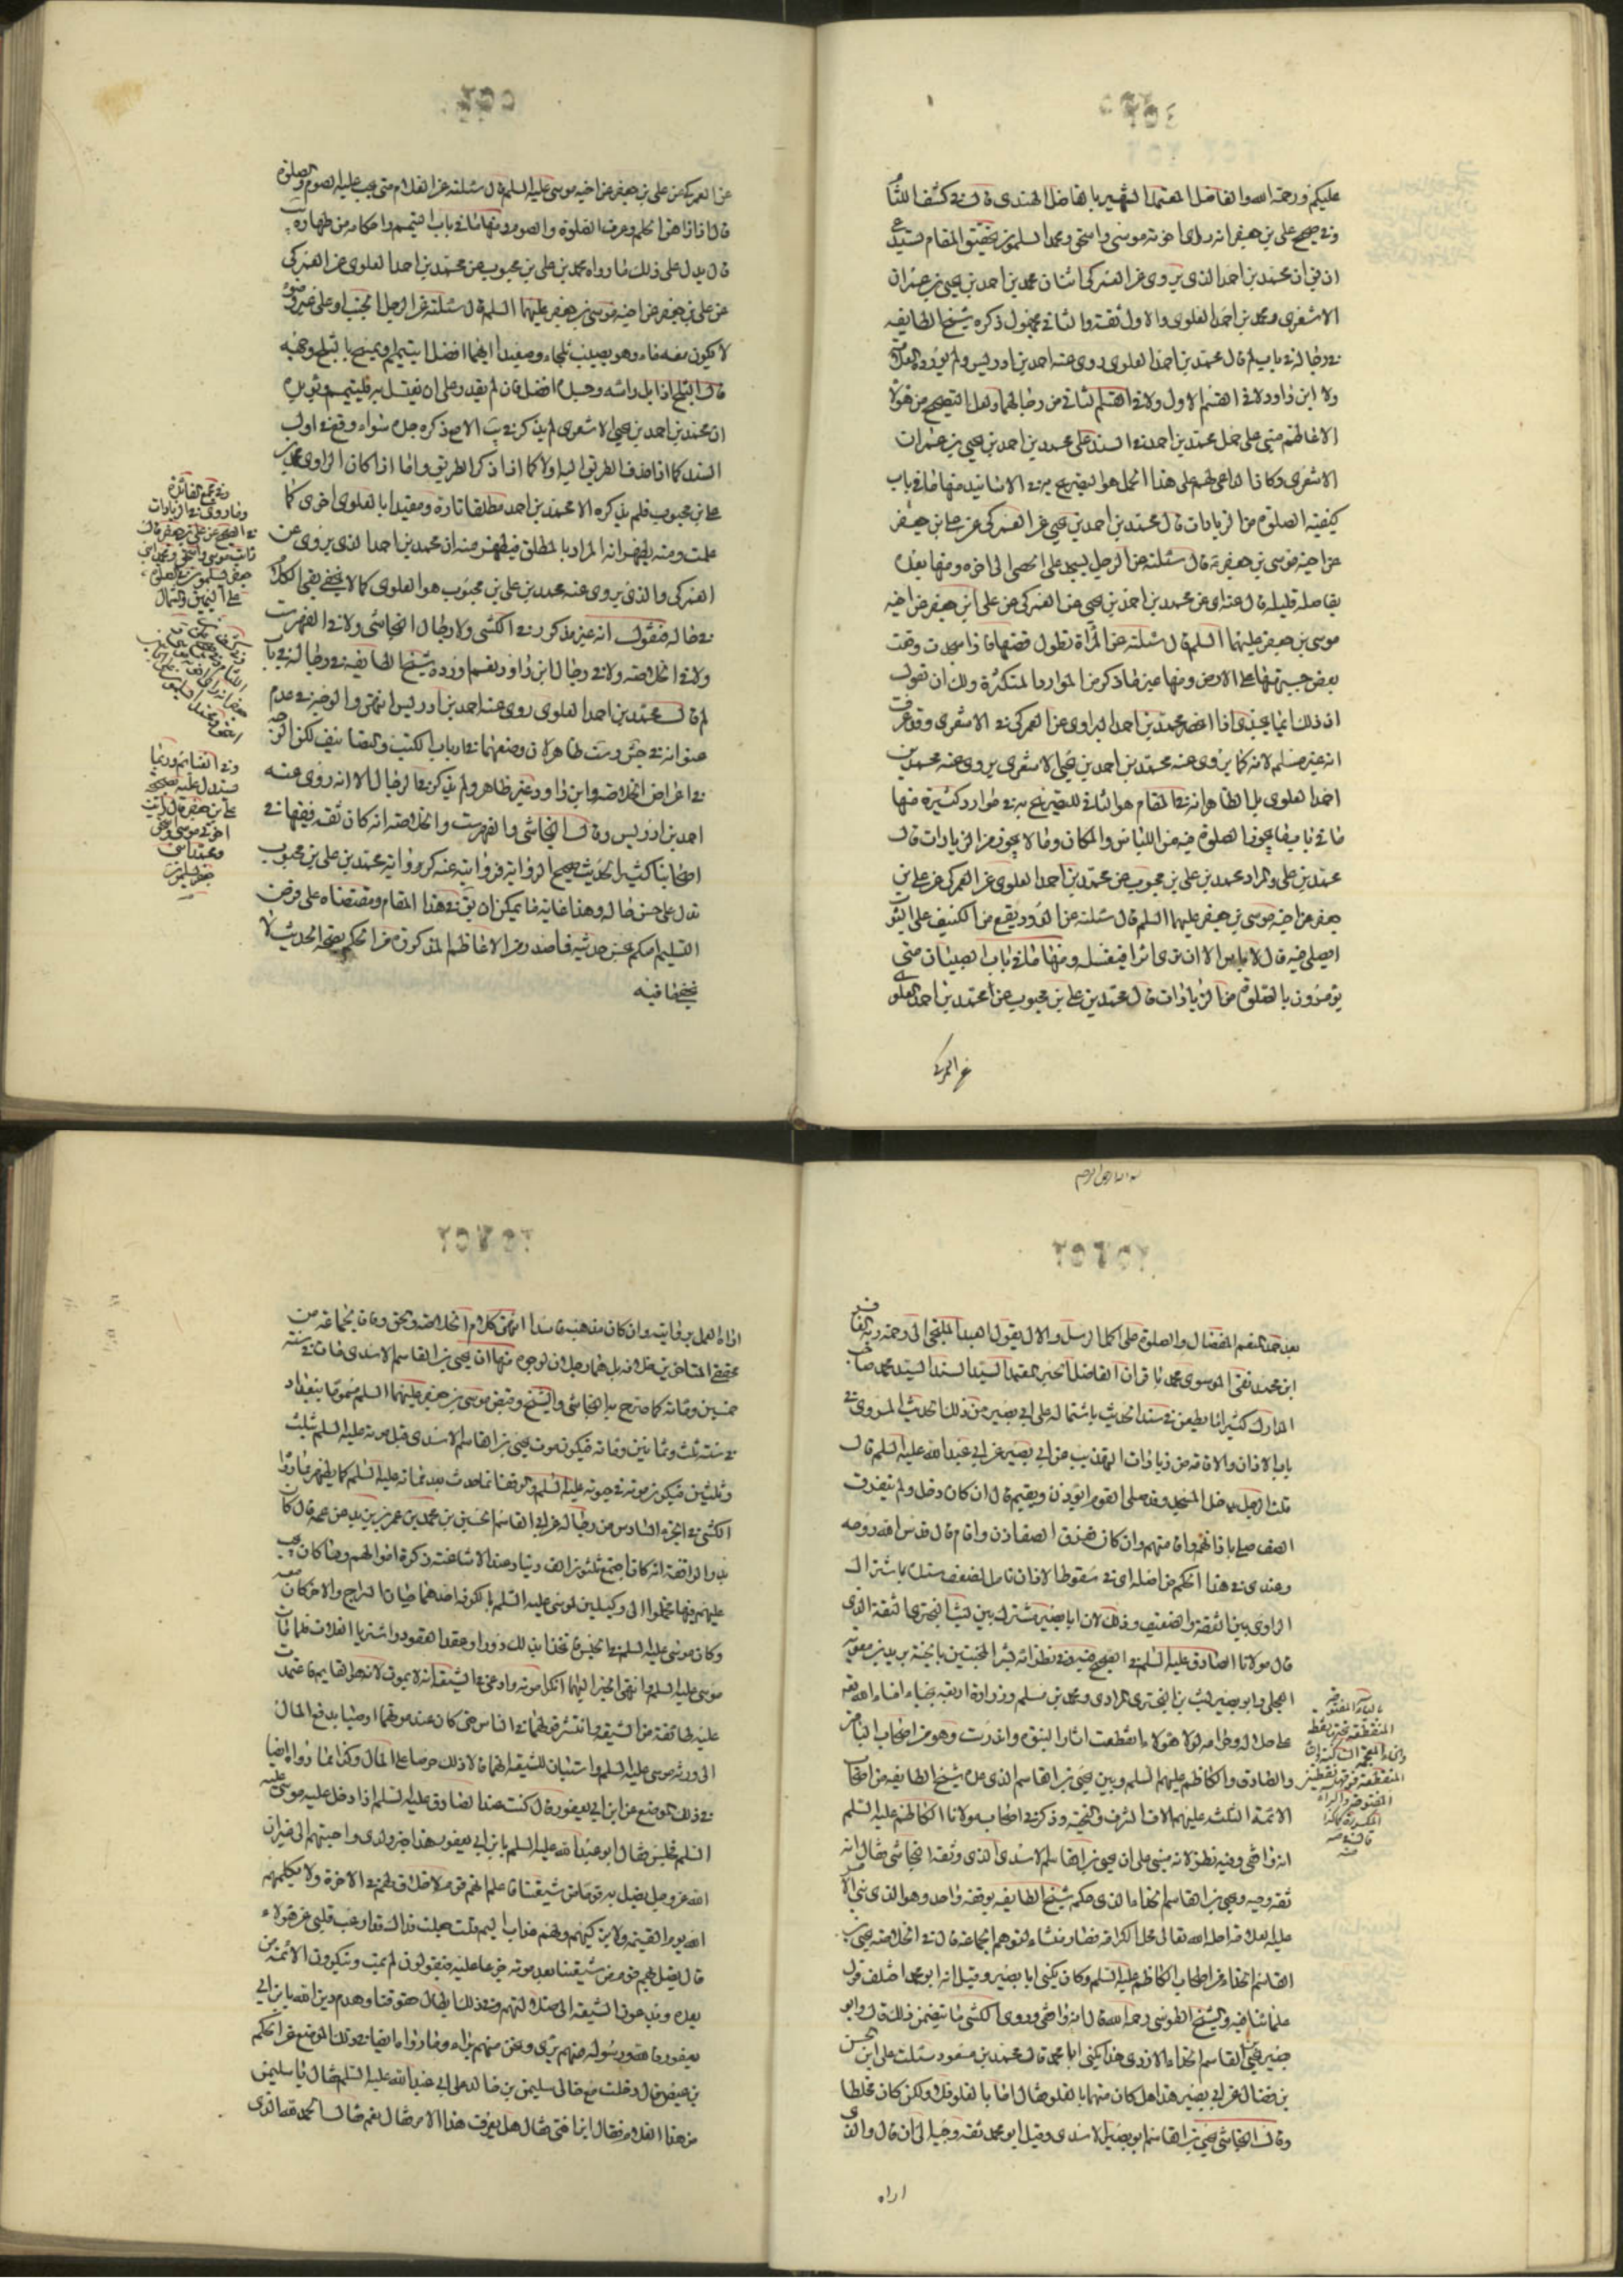 ٢٥٤
عليكم ورحمة الله والفاضل المعتمد الشهير بالفاضل الهندى قال فى كشف اللثام
وفى صحيح على بن جعفر انه راى اخوته موسى واسحق ومحمدا يسلمون تحقيق المقام يستدعى
ان محمد بن احمد الذى يروى عن العمركى اثنان محمد بن احمد بن يحيى بن عمران
الاشعرى ومحمد بن احمد العلوى والاول ثقة والثانى مجهول ذكره شيخ الطايفه
فى رجاله فى باب لم قال محمد بن احمد العلوى روى عنه احمد بن ادريس ولم يورده العلامة
ولا ابن داود لا فى القسم الاول ولا فى القسم الثانى من رجالهما ولعل التصحيح من هؤلاء
الاعاظم مبنى على حمل محمد بن احمد فى السند على محمد بن احمد بن يحيى بن عمران
الاشعرى وكان الداعى لهم على هذا الحمل هو التصريح به فى الاسانيد منها ما فى باب
كيفية الصلوة من الزيادات قال محمد بن احمد بن يحيى عن العمركى عن على بن جعفر
عن اخيه موسى بن جعفر قال سئلته عن الرجل يسجد على الحصى الى اخره ومنها بعده
بفاصلة قليلة قال عنه اى عن محمد بن احمد بن يحيى عن العمركى عن على بن جعفر عن اخيه
موسى بن جعفر عليهما السلم قال سئلته عن المرأة تطول قصتها فاذا سجدت وقعت
بعض جبهتها على الارض ومنها غير ما ذكر من الموارد المتكثرة ولك ان تقول
ان ذلك انما يجدى اذا انحصر محمد بن احمد الراوى عن العمركى فى الاشعرى وقد عرفت
انه غير مسلم لانه كما يروى عنه محمد بن احمد بن يحيى الاشعرى يروى عنه محمد بن
احمد العلوى بل الظاهر انه فى المقام هو الثانى للتصريح به فى موارد كثيرة منها
ما فى باب ما يجوز الصلوة فيه من اللباس والمكان وما لا يجوز من الزيادات قال
محمد بن على والمراد محمد بن على بن محبوب عن محمد بن احمد العلوى عن العمركى عن على بن
جعفر عن اخيه موسى بن جعفر عليهما السلم قال سئلته عن الدود يقع من الكنيف على الثوب
ايصلى فيه قال لا باس الا ان ترى اثرا فتغسله ومنها ما فى باب الصبيان متى
يؤمرون بالصلوة من الزيادات قال محمد بن على بن محبوب عن محمد بن احمد العلوى
عن العمركى
٢٥٥
عن العمركى عن على بن جعفر عن اخيه موسى عليه السلم قال سئلته عن الغلام متى يجب عليه الصوم والصلوة
قال اذا راهق الحلم وعرف الصلوة والصوم ومنها ما فى باب التيمم واحكامه من طهارة
قال يدل على ذلك ما رواه محمد بن على بن محبوب عن محمد بن احمد العلوى عن العمركى
عن على بن جعفر عن اخيه موسى بن جعفر عليهما السلم قال سئلته عن الرجل الجنب او على غير وضوء
لا يكون معه ماء وهو يصيب ثلجا وصعيدا ايهما افضل ايتيمم او يمسح بالثلج وجهه
قال الثلج اذا بل راسه وجسده افضل فان لم يقدر على ان يغتسل به فليتيمم
ان محمد بن احمد بن يحيى الاشعرى لم يذكر الا مع ذكر جده سواء وقع فى اول
السند كما اذا حذف الطريق اليه اولا كما اذا ذكر الطريق واما اذا كان الراوى محمد بن
على بن محبوب فلم يذكره الا محمد بن احمد مطلقا تارة ومقيدا بالعلوى اخرى كما
علمت ومنه يظهر انه المراد بالمطلق فيظهر منه ان محمد بن احمد الذى يروى عن
العمركى والذى يروى عنه محمد بن على بن محبوب هو العلوى كما لا يخفى بقى الكلام
فى حاله فنقول انه غير مذكور فى الكشى ولا رجال النجاشى ولا فى الفهرست
ولا فى الخلاصه ولا فى رجال ابن داود نعم اورده شيخ الطايفه فى رجاله فى باب
لم قال محمد بن احمد العلوى روى عنه احمد بن ادريس انتهى والوجه فى عدم
عنوانه فى جش وست ظاهر لان وضعهما فى ارباب الكتب والتصانيف لكن الوجه
فى اعراض الخلاصه وابن داود غير ظاهر ولم يذكر فى الرجال الا انه روى عنه
احمد بن ادريس وقال النجاشى والفهرست والخلاصه انه كان ثقة فقيها فى
اصحابنا كثير الحديث صحيح الروايه فروايته عنه كرواية محمد بن على بن محبوب
تدل على حسن حاله وهذا غاية ما يمكن ان يق فى هذا المقام ومقتضاه على فرض
التسليم الحكم بحسن حديثه فما صدر من الاعاظم المذكورة من الحكم بصحة الحديث لا
يخفى ما فيه
وفى مجمع الفائدة
وما روى فى الزيادات
فى الصحيح عن على بن جعفر قال
رايت موسى واسحق ومحمد ابنى
جعفر يسلمون فى الصلوة
على اليمين والشمال
وفى الغنائم وربما
يستدل عليه بصحيحة
على بن جعفر قال رايت
اخوتى موسى واسحق
ومحمد ابنى
جعفر يسلمون
بسم الله الرحمن الرحيم
٢٥٦
بعد حمد المنعم المفضال والصلوة على اكمل الرسل والال يقول العبد الملتجى الى رحمة ربه الغافر
ابن محمد تقى الموسوى محمد باقر ان الفاضل الخبير المعتمد السيد السند السيد محمد صاحب
المدارك كثيرا ما يطعن فى سند الحديث باشتماله على ابى بصير من ذلك الحديث المروى فى
باب الاذان والاقامة من زيادات التهذيب عن ابى بصير عن ابى عبد الله عليه السلم قال
قلت الرجل يدخل المسجد وقد صلى القوم ايؤذن ويقيم قال ان كان دخل ولم يتفرق
الصف صلى باذانهم واقامتهم وان كان تفرق الصف اذن واقام قال قدس الله روحه
وعندى فى هذا الحكم من اصله اى فى سقوط الاذان تامل لضعف مستنده باشتراك
الراوى بين الثقة والضعيف وذلك لان ابا بصير مشترك بين ليث البخترى الثقة الذى
قال مولانا الصادق عليه السلم فى الصحيح فيه وفى نظرائه بشر المخبتين بالجنة بريد بن معويه
العجلى وابو بصير ليث بن البخترى المرادى ومحمد بن مسلم وزرارة اربعة نجباء امناء الله
على حلاله وحرامه لولا هؤلاء انقطعت اثار النبوة واندرست وهو من اصحاب الباقر
والصادق والكاظم عليهم السلم وبين يحيى بن القاسم الذى عده شيخ الطايفه من اصحاب
الائمة الثلثه عليهم الاف الشرف والتحيه وذكر فى اصحاب مولانا الكاظم عليه السلم
انه واقفى وفيه نظر لانه مبنى على ان يحيى بن القاسم الاسدى الذى وثقه النجاشى فقال انه
ثقة وجيه ويحيى بن القاسم الحذاء الذى حكم شيخ الطايفه بوقفه واحد وهو الذى بنى الامر
عليه العلامة احله الله تعالى محل الكرامة فصار منشاء لتوهم الجماعة قال فى الخلاصه يحيى بن
القاسم الحذاء من اصحاب الكاظم عليه السلم وكان يكنى ابا بصير وقيل انه ابو محمد اختلف قول
علمائنا فيه والشيخ الطوسى رحمه الله قال انه واقفى وروى الكشى ما يتضمن ذلك قال وابو
بصير يحيى بن القاسم الحذاء الازدى هذا يكنى ابا محمد قال محمد بن مسعود سئلت على بن الحسن
بن فضال عن ابى بصير هذا هل كان متهما بالغلو فقال اما بالغلو فلا ولكن كان مخلطا
وقال النجاشى يحيى بن القاسم ابو بصير الاسدى وقيل ابو محمد ثقه وجيه الى ان قال والذى
اراه
٢٥٧
اراه العمل بروايته وان كان مذهبه فاسدا انتهى كلام الخلاصه والحق وفاقا لجماعة من
محققى المتاخرين خلافه بل هما رجلان لوجوه منها ان يحيى بن القاسم الاسدى مات فى سنة
خمسين ومائة كما صرح به النجاشى والشيخ وقبض موسى بن جعفر عليهما السلم مسموما ببغداد
فى سنة ثلث وثمانين ومائة فيكون موت يحيى بن القاسم الاسدى قبل موته عليه السلم بثلث
وثلثين فيكون موته فى حيوته عليه السلم والوقف انما حدث بعد وفاته عليه السلم كما يظهر مما رواه
الكشى فى الجزء السادس من رجاله عن ابى القاسم الحسين بن محمد بن عمر بن يزيد عن عمه قال كان
بدو الواقفة انه كان اجتمع ثلثون الف دينار عند الاشاعثه زكوة اموالهم وما كان يجب
عليهم فيها فحملوا الى وكيلين لموسى عليه السلم بالكوفه احدهما حيان السراج والاخر كان معه
وكان موسى عليه السلم فى الحبس فاتخذا بذلك دورا وعقدا العقود واشتريا الغلات فلما مات
موسى عليه السلم وانتهى الخبر اليهما انكرا موته واذاعا فى الشيعة انه لا يموت لانه هو القايم فاعتمدت
عليه طائفة من الشيعه وانتشر قولهما فى الناس حتى كان عند موتهما اوصيا بدفع المال
الى ورثة موسى عليه السلم واستبان للشيعة انهما قالا ذلك حرصا على المال وكذا مما رواه ايضا
فى ذلك الموضع عن ابن ابى يعفور قال كنت عند الصادق عليه السلم اذ دخل عليه موسى عليه
السلم فجلس فقال ابو عبد الله عليه السلم يا بن ابى يعفور هذا خير ولدى واحبهم الى غير ان
الله عز وجل يضل به قوما من شيعتنا فاعلم انهم قوم لا خلاق لهم فى الاخرة ولا يكلمهم
الله يوم القيمه ولا يزكيهم ولهم عذاب اليم قلت جعلت فداك قد ارعبت قلبى عن هؤلاء
قال يضل بهم قوم من شيعتنا بعد موته جزعا عليه فيقولون لم يمت وينكرون الائمة من
بعده ويدعون الشيعه الى ضلالتهم وفى ذلك ابطال حقوقنا وهدم دين الله يا بن ابى
يعفور فالله ورسوله منهم برئ ونحن منهم براء ومما رواه ايضا فى ذلك الموضع عن الحكم
بن عيص قال دخلت مع خالى سليمن بن خالد على ابى عبد الله عليه السلم فقال يا سليمن
من هذا الغلام فقال ابن اختى فقال هل يعرف هذا الامر فقال نعم فقال الحمد لله الذى